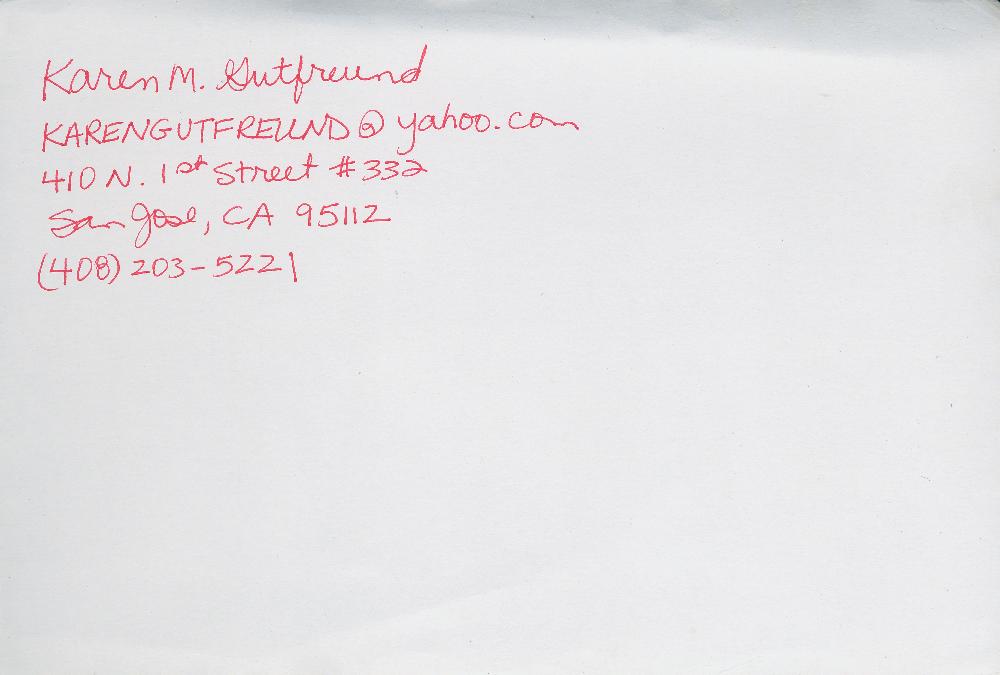 Karen M. Gutfreund
KARENGUTFREUND@yahoo.com
410 N. 1st Street #332
San Jose, CA 95112
(408) 203-5221